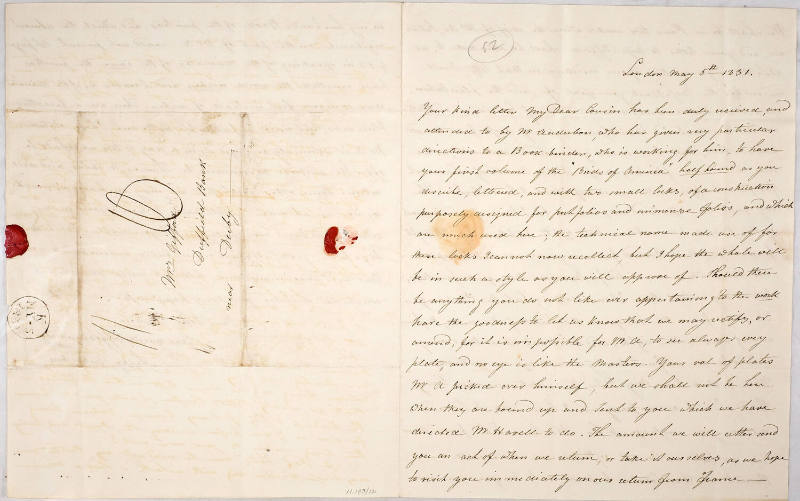 52
London May 8th 1831.
Your kind letter My Dear Cousin has been duly received, and
attended to by Mr Audubon, who has given very particular
directions to a Book binder, who is working for him, to have
your first volume of the "Birds of America" half bound as you
describe, lettered, and with two small locks, of a construction
purposely designed for portfolios and immense folios, and which
are much used here; the technical name made use of for
these locks I cannot now recollect, but I hope the whole will
be in such a style as you will approve of. Should there
be anything you do not like ever appertaining to the work
have the goodness to let us know that we may rectify, or
amend, for it is impossible for Mr A, to see always every
plate, and no eye is like the Masters. Your vol of plates
Mr A picked over himself, but we shall not be here
when they are bound up and sent to you which we have
directed Mr Havell to do. The amount we will either send
you an act of when we return, or take it ourselves, as we hope
to visit you immediately on our return from France
Mrs
Duffield Bank
near Derby
11.193/12